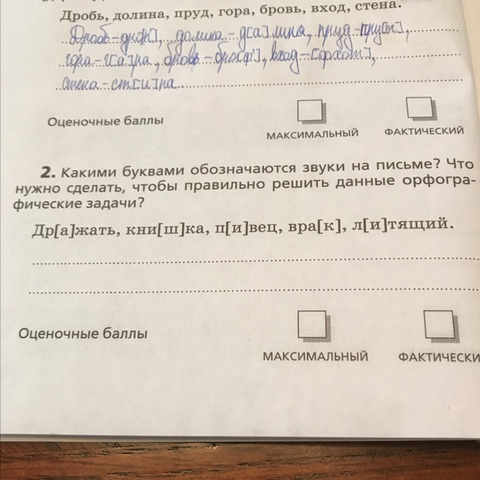 Дробь, долина, пруд, гора, бровь, вход, стена.
долина - д[а]лина, пруд - пру[т],
гора - г[а]ра, бровь - бро[ф'], вход -
стена - ст[и]на
Оценочные баллы
МАКСИМАЛЬНЫЙ ФАКТИЧЕСКИЙ
2. Какими буквами обозначаются звуки на письме? Что
нужно сделать, чтобы правильно решить данные орфогра-
фические задачи?
Др[а]жать, кни[ш]ка, п[и]вец, вра[к], л[и]тящий.
Оценочные баллы
МАКСИМАЛЬНЫЙ ФАКТИЧЕСКИ